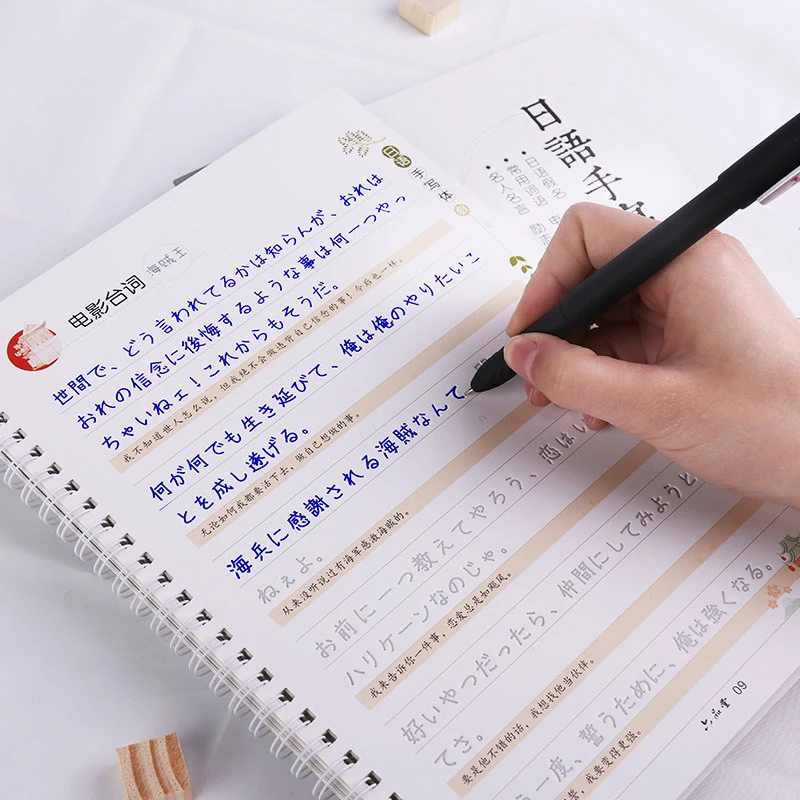 日語手
日语假名
常用词语
名人名言
日语
手写体
电影台词
海贼王
世間で、どう言われてるかは知らんが、おれは
おれの信念に後悔するような事は何一つやっ
ちゃいねェ！これからもそうだ。
我不知道世人怎么说，但我绝不会做违背自己信念的事！今后也一样。
何が何でも生き延びて、俺は俺のやりたいこ
とを成し遂げる。
无论如何我都要活下去，做自己想做的事。
海兵に感謝される海賊なんて
ねぇよ。
从来没听说过有海军感激海贼的。
お前に一つ教えてやろう、恋はい
ハリケーンなのじゃ。
我来告诉你一件事，恋爱总是如飓风。
好いやつだったら、仲間にしてみようと
てさ。
要是他不错的话，我想找他当伙伴。
う一度、誓うために、俺は強くなる。
我要变得更强。
六品堂 09